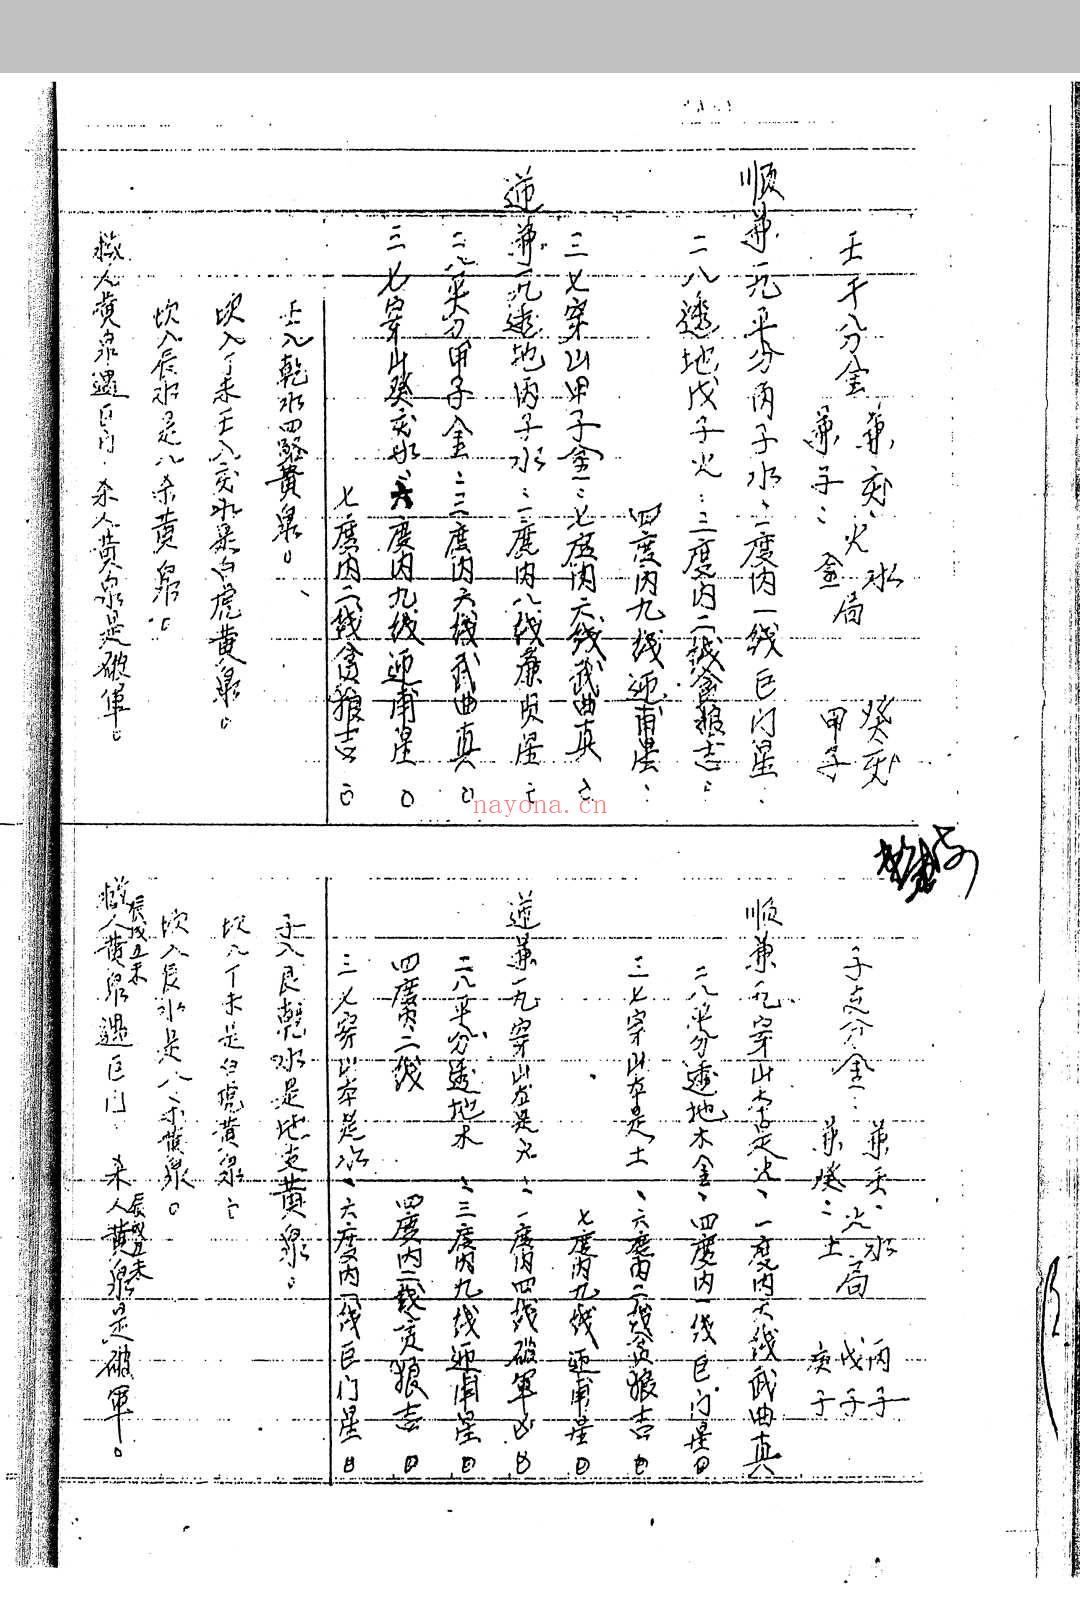 壬子分金
兼亥、火水局 癸亥
兼子：金 甲子
順兼一九平分丙子水、一度内一线巨门星
二八透地戊子火：三度内二线貪狼吉
四度内九线迎甫星
三七穿山甲子金：七度内六线武曲真
逆兼一九透地丙子水：一度内八线廉贞星
二八平分甲子金：三度内六线武曲真
三七穿山癸亥水：六度内九线迎甫星
七度内二线貪狼吉
壬入乾水四路黄泉
坎入丁未壬入亥水是白虎黄泉
坎入辰水是八杀黄泉
救人黄泉遇巨门 杀人黄泉是破軍
nayona.cn
子支分金：
兼壬、火水局 丙子
戊子
兼癸：土 庚子
順兼一九穿山本是火、一度内六线武曲真
二八平分透地木金：四度内一线巨门星
三七穿山本是土、六度内二线貪狼吉
七度内九线迎甫星
逆兼一九穿山本是火：一度内四线破軍凶
二八平分透地木：三度内九线迎甫星
四度内二线 四度内二线貪狼吉
三七穿山本是水：六度内一线巨门星
子入艮乾水是地支黄泉
坎入丁未是白虎黄泉
坎入辰水是八杀黄泉
辰戌丑未 辰戌丑未
救人黄泉遇巨门 杀人黄泉是破軍